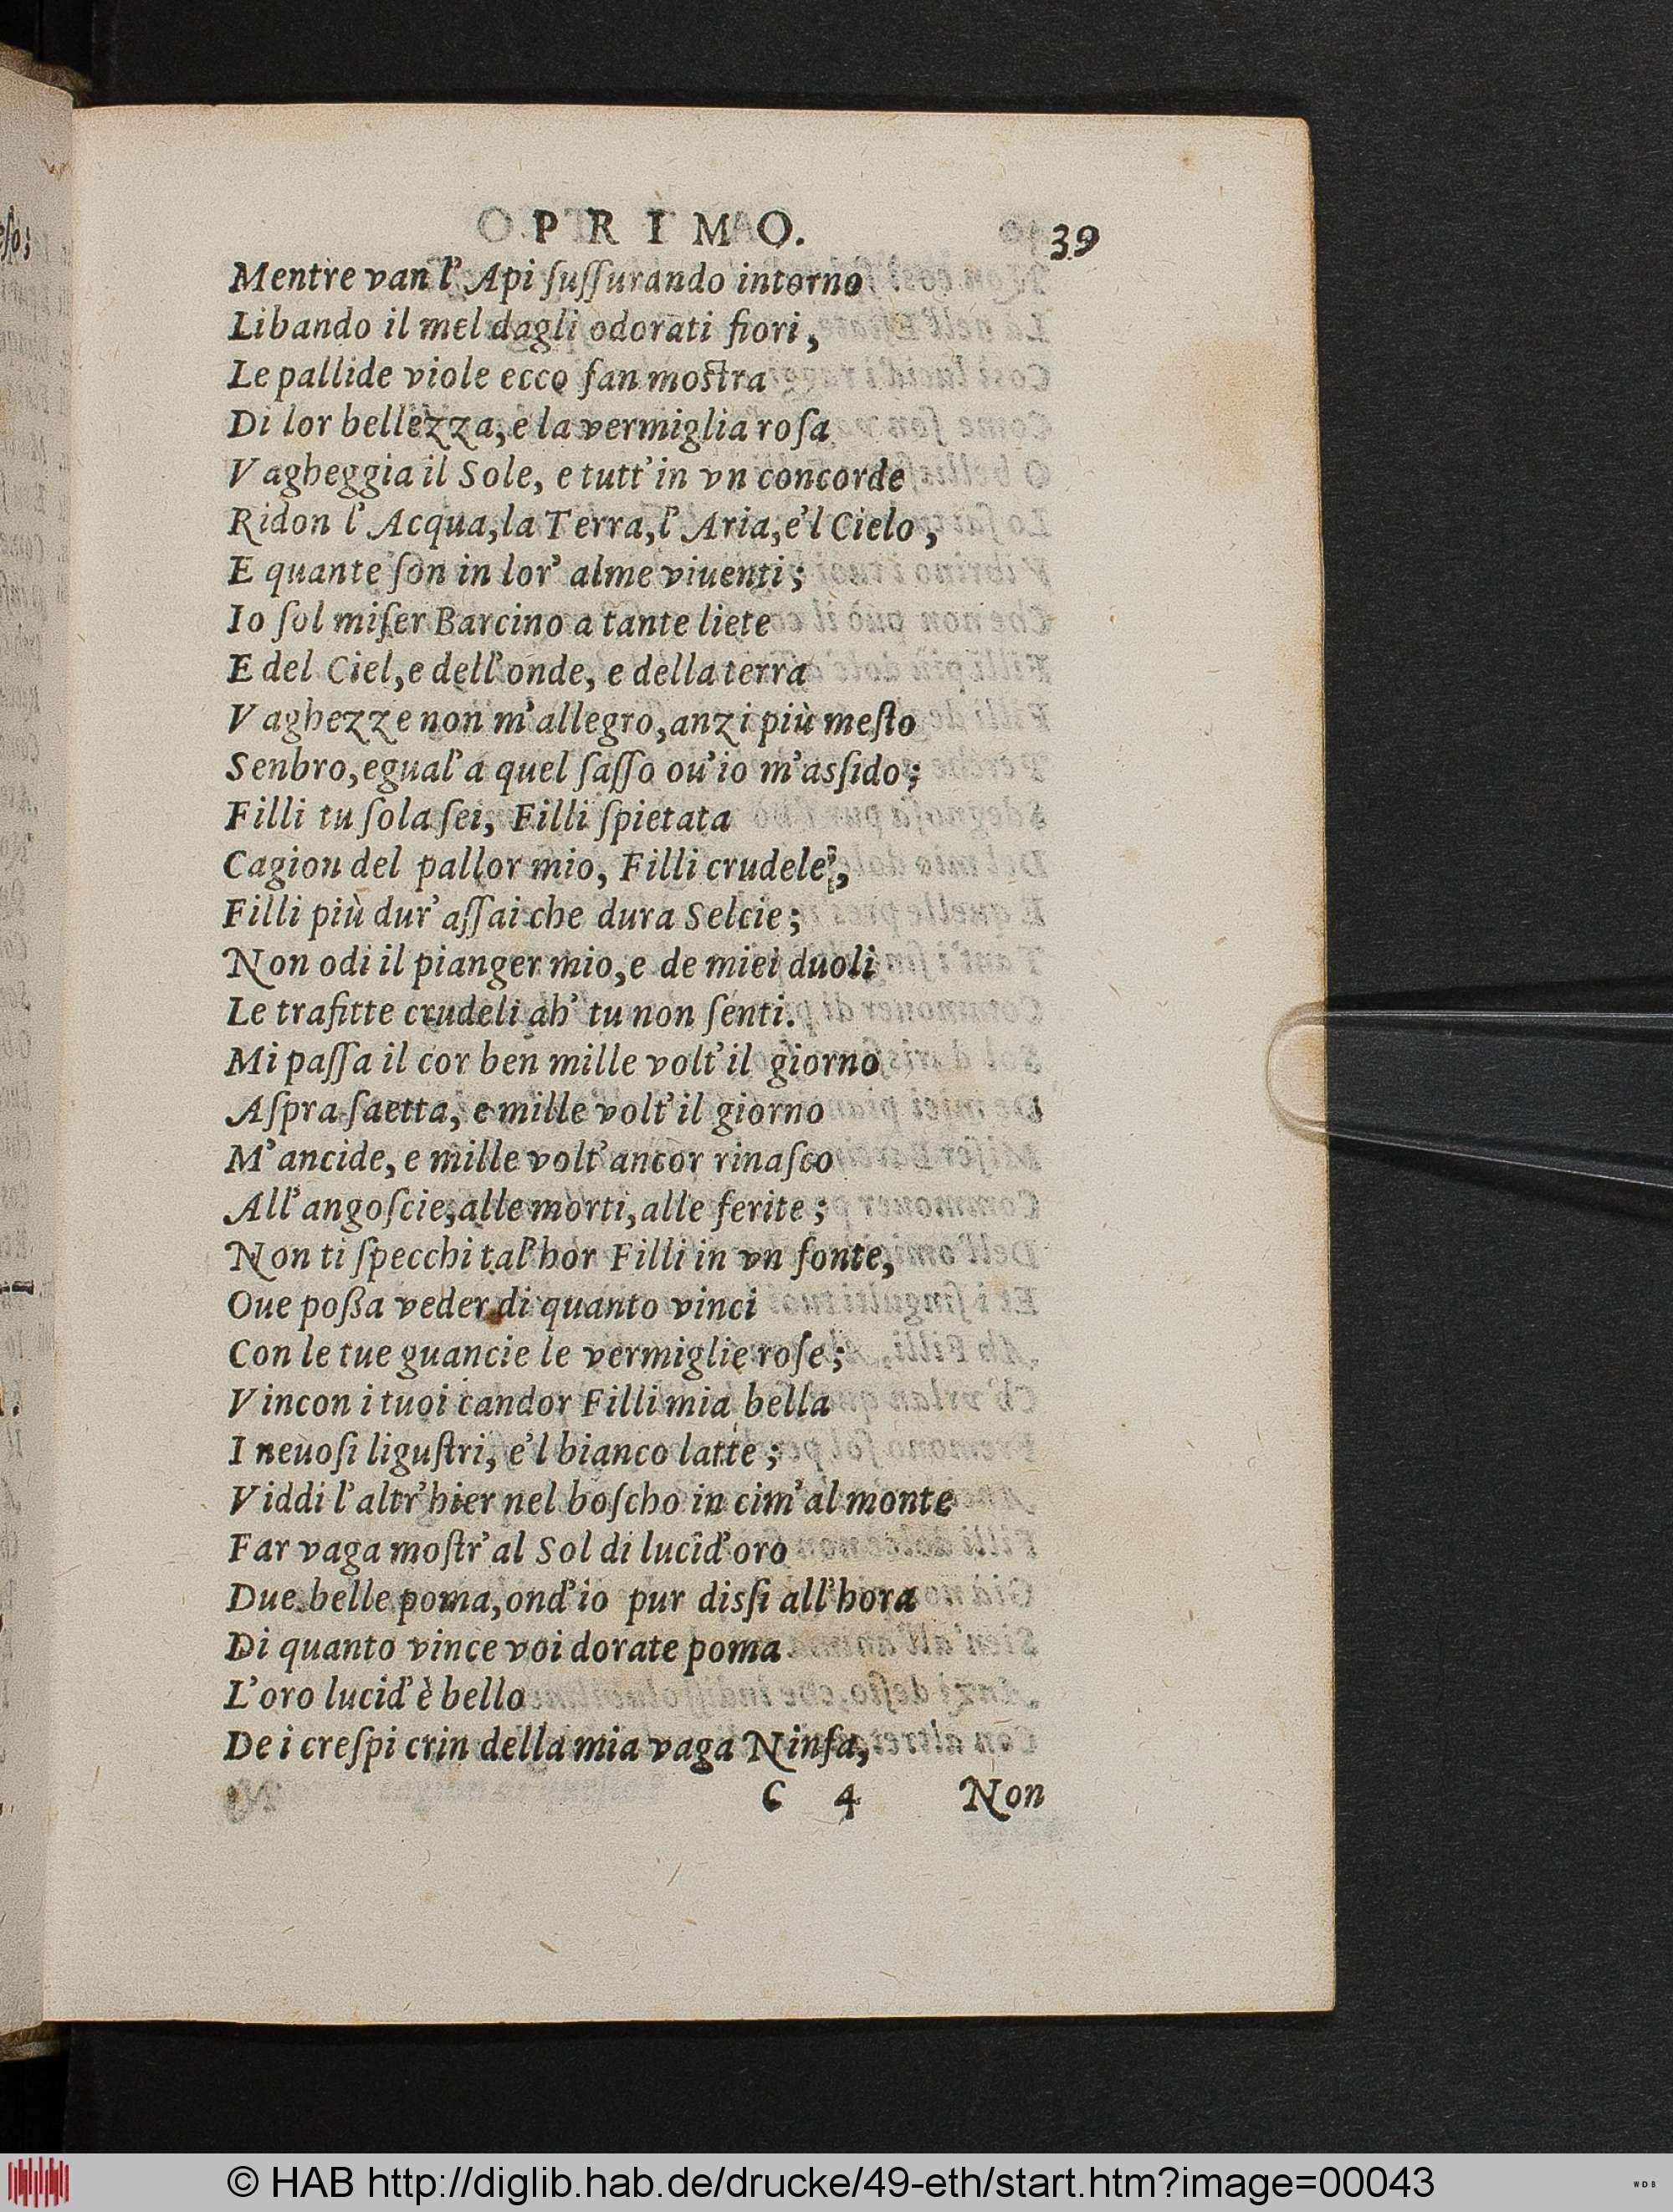 PRIMO. 39
Mentre van l' Api ſuſſurando intorno
Libando il mel dagli odorati fiori,
Le pallide viole ecco fan moſtra
Di lor bellezza, e la vermiglia roſa
Vagheggia il Sole, e tutt'in vn concorde
Ridon l'Acqua, la Terra, l'Aria, e'l Cielo,
E quante ſon in lor' alme viuenti;
Io ſol miſer Barcino a tante liete
E del Ciel, e dell'onde, e della terra
Vaghezze non m'allegro, anzi più meſto
Senbro, egual'a quel ſaſſo ou'io m'asſido;
Filli tu ſola ſei, Filli ſpietata
Cagion del pallor mio, Filli crudele,
Filli più dur' aſſai che dura Selcie;
Non odi il pianger mio, e de miei duoli
Le trafitte crudeli ah' tu non ſenti.
Mi paſſa il cor ben mille volt'il giorno
Aſpra ſaetta, e mille volt'il giorno
M'ancide, e mille volt'ancor rinaſco
All'angoſcie, alle morti, alle ferite;
Non ti ſpecchi tal'hor Filli in vn fonte,
Oue poßa veder di quanto vinci
Con le tue guancie le vermiglie roſe;
Vincon i tuoi candor Filli mia bella
I neuoſi liguſtri, e'l bianco latte;
Viddi l'altr'hier nel boſcho in cim'al monte
Far vaga moſtr'al Sol di lucid'oro
Due belle poma, ond'io pur disſi all'hora
Di quanto vince voi dorate poma
L'oro lucid'è bello
De i creſpi crin della mia vaga Ninfa,
C 4 Non
© HAB http://diglib.hab.de/drucke/49-eth/start.htm?image=00043
WDB